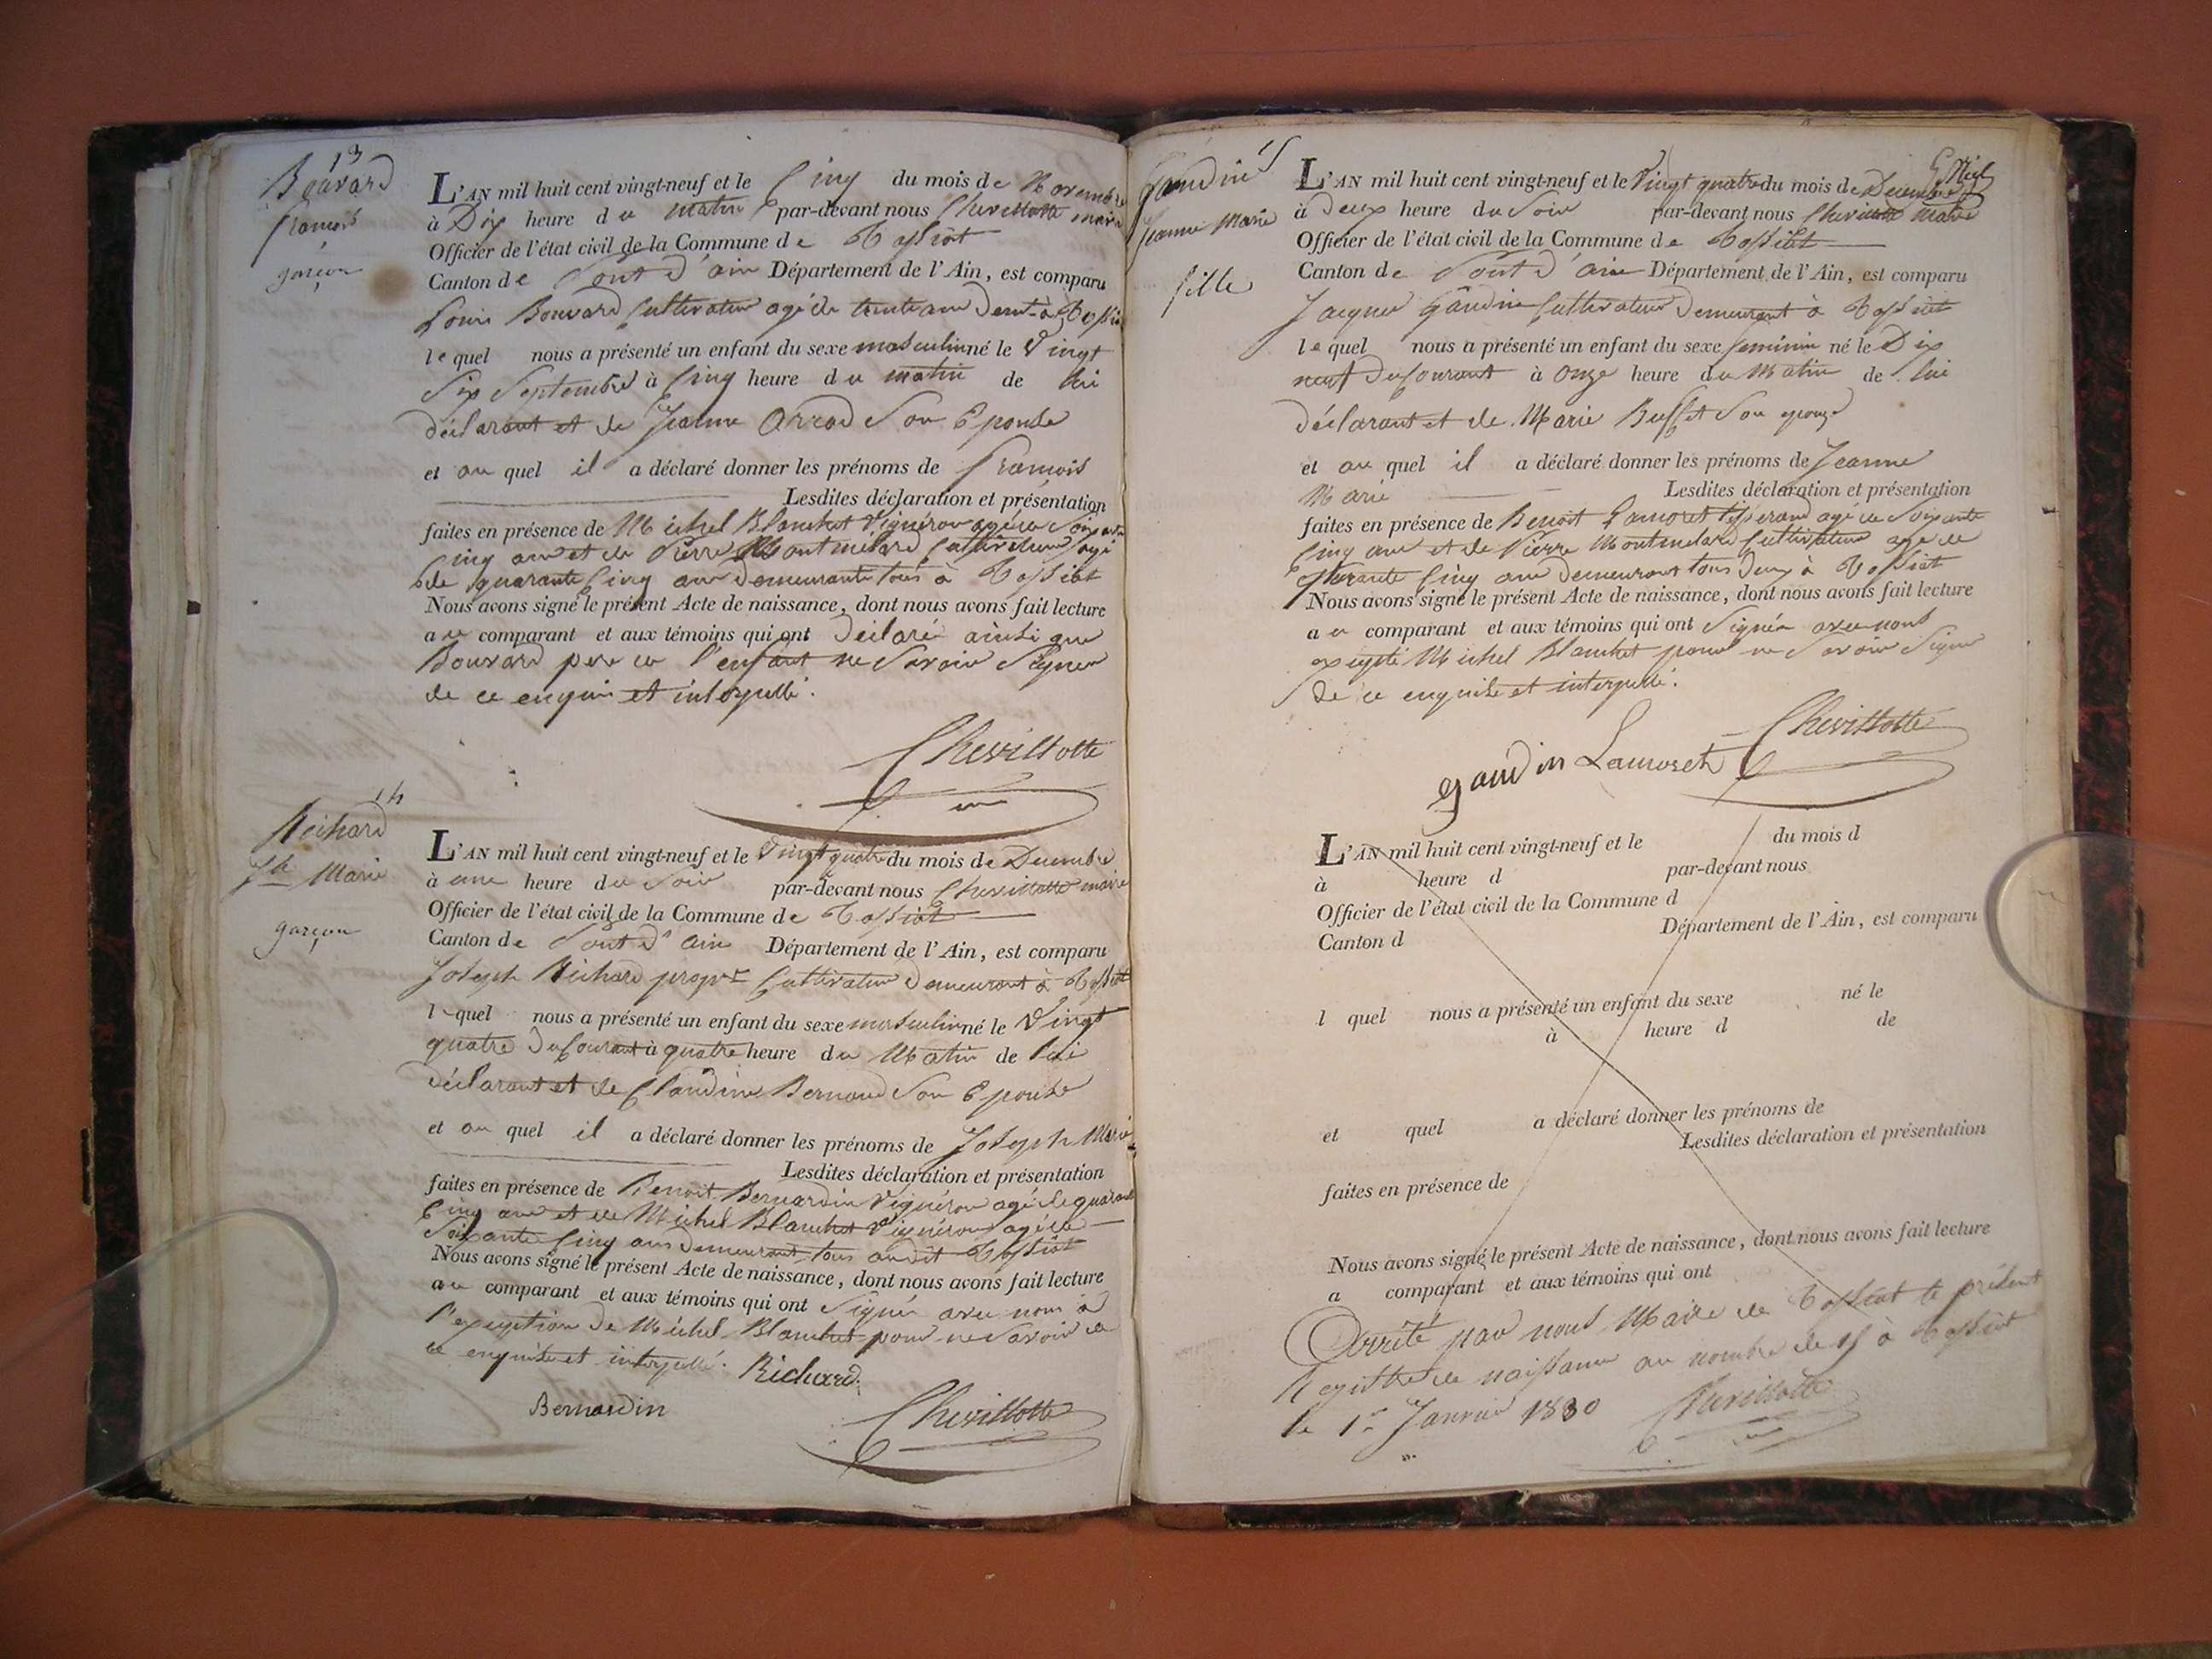 13
Bouvard
françois
garçon
L'AN mil huit cent vingt-neuf et le Cinq du mois de Novembre
à Dix heure du matin par-devant nous Chevillotte maire
Officier de l'état civil de la Commune de Tossiat
Canton de Pont d'ain Département de l'Ain, est comparu
Louis Bouvard Cultivateur agé de trente ans demt à Tossiat
lequel nous a présenté un enfant du sexe masculin né le Vingt
Six Septembre à Cinq heure du matin de lui
déclarant et de Jeanne Son Epouse
et au quel il a déclaré donner les prénoms de françois
Lesdites déclaration et présentation
faites en présence de Michel Blanchet Vignéron agé de Soixante
Cinq ans et de Pierre Montmélard Cultivateur agé
de quarante Cinq ans demeurants tous à Tossiat
Nous avons signé le présent Acte de naissance, dont nous avons fait lecture
au comparant et aux témoins qui ont déclaré ainsi que
Bouvard pere de l'enfant ne Savoir Signer
de ce enquis et interpellé.
Chevillotte
14
Richard
Jh Marie
garçon
L'AN mil huit cent vingt-neuf et le Vingt quatre du mois de Decembre
à une heure du Soir par-devant nous Chevillotte maire
Officier de l'état civil de la Commune de Tossiat
Canton de Pont d'ain Département de l'Ain, est comparu
Joseph Richard propre Cultivateur demeurant à Tossiat
l quel nous a présenté un enfant du sexe masculin né le Vingt
quatre du Courant à quatre heure du Matin de lui
déclarant et de Claudine Bernard Son Epouse
et au quel il a déclaré donner les prénoms de Joseph Marie
Lesdites déclaration et présentation
faites en présence de Benoit Bernardin Vignéron agé de quarante
Cinq ans et de Michel Blanchet Vignéron agé de
Soixante Cinq ans demeurant tous audit Tossiat
Nous avons signé le présent Acte de naissance, dont nous avons fait lecture
au comparant et aux témoins qui ont Signé avec nous à
l'exception de Michel Blanchet pour ne Savoir de
ce enquis et interpellé. Richard
Bernardin
Chevillotte
15
Gaudin
Jeanne Marie
fille
L'AN mil huit cent vingt-neuf et le Vingt quatre du mois de Decembre
à deux heure du Soir par-devant nous Chevillotte Maire
Officier de l'état civil de la Commune de Tossiat
Canton de Pont d'ain Département de l'Ain, est comparu
Jacques Gaudin Cultivateur demeurant à Tossiat
lequel nous a présenté un enfant du sexe feminin né le Dix
neuf du Courant à onze heure du Matin de lui
déclarant et de Marie Buffet Son epouze
et au quel il a déclaré donner les prénoms de Jeanne
Marie Lesdites déclaration et présentation
faites en présence de Benoit Lamoret tisserand agé de Soixante
Cinq ans et de Pierre Montmelard Cultivateur agé de
quarante Cinq ans demeurant tous deux à Tossiat
Nous avons signé le présent Acte de naissance, dont nous avons fait lecture
au comparant et aux témoins qui ont Signés avec nous
excepté Michel Blanchet pour ne Savoir Signer
de ce enquis et interpellé.
gaudin Chevillotte
L'AN mil huit cent vingt-neuf et le du mois d
à heure d par-devant nous
Officier de l'état civil de la Commune d
Canton d Département de l'Ain, est comparu
l quel nous a présenté un enfant du sexe né le
à heure d de
et quel a déclaré donner les prénoms de
Lesdites déclaration et présentation
faites en présence de
Nous avons signé le présent Acte de naissance, dont nous avons fait lecture
a comparant et aux témoins qui ont
Arrêté par nous Maire de Tossiat le présent
Registre de naissance au nombre de 15 à Tossiat
le 1er Janvier 1830 Chevillotte